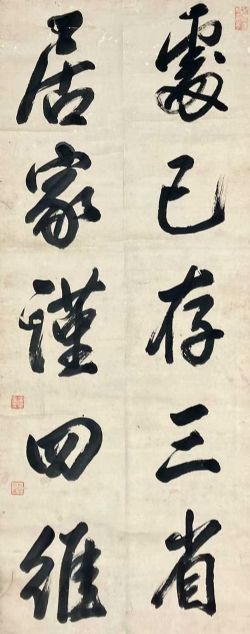 處己存三省
居家謹四維